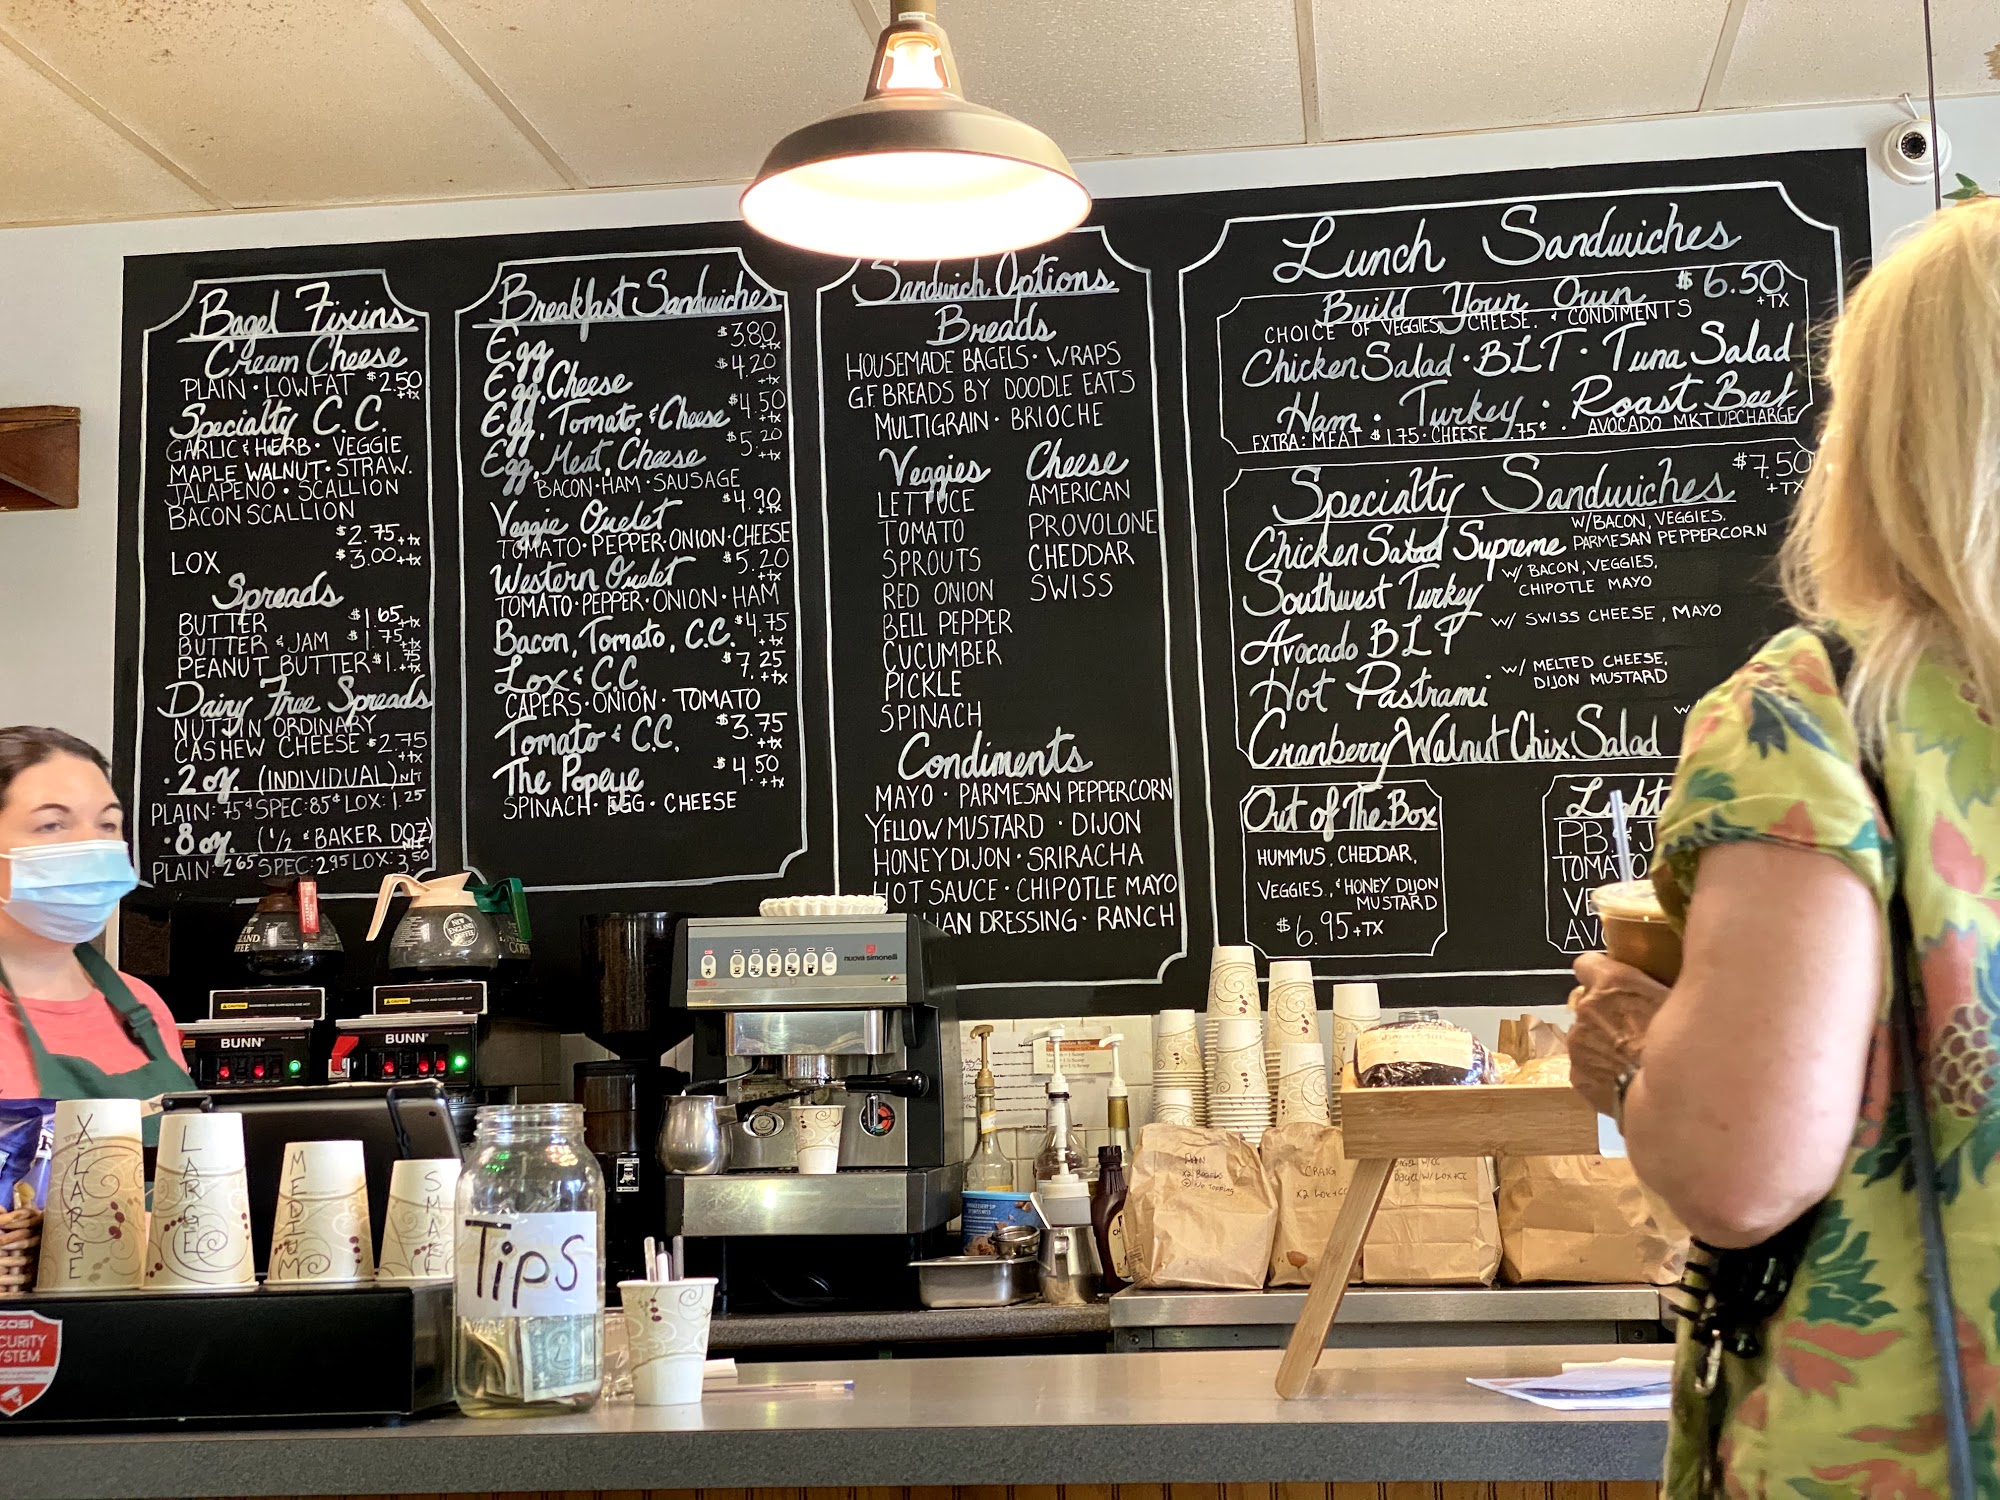 Bagel Fixins
Cream Cheese
PLAIN · LOWFAT $2.50 +tx
Specialty C.C.
GARLIC & HERB · VEGGIE
MAPLE WALNUT · STRAW.
JALAPENO · SCALLION
BACON SCALLION
$2.75 +tx
LOX $3.00 +tx
Spreads
BUTTER $1.65 +tx
BUTTER & JAM $1.75 +tx
PEANUT BUTTER $1.75 +tx
Dairy Free Spreads
NUTJIN ORDINARY
CASHEW CHEESE $2.75 +tx
· 2 oz. (INDIVIDUAL)
PLAIN: 75¢ SPEC: 85¢ LOX: 1.25
· 8 oz. (1/2 & BAKER DOZ)
PLAIN: 2.65 SPEC: 2.95 LOX: 3.50
Breakfast Sandwiches
Egg $3.80 +tx
Egg, Cheese $4.20 +tx
Egg, Tomato, & Cheese $4.50 +tx
Egg, Meat, Cheese $5.20 +tx
BACON · HAM · SAUSAGE
Veggie Omelet $4.90 +tx
TOMATO · PEPPER · ONION · CHEESE
Western Omelet $5.20 +tx
TOMATO · PEPPER · ONION · HAM
Bacon, Tomato, C.C. $4.75 +tx
Lox & C.C. $7.25 +tx
CAPERS · ONION · TOMATO
Tomato & C.C. $3.75 +tx
The Popeye $4.50 +tx
SPINACH · EGG · CHEESE
Sandwich Options
Breads
HOUSEMADE BAGELS · WRAPS
G.F BREADS BY DOODLE EATS
MULTIGRAIN · BRIOCHE
Veggies
LETTUCE
TOMATO
SPROUTS
RED ONION
BELL PEPPER
CUCUMBER
PICKLE
SPINACH
Cheese
AMERICAN
PROVOLONE
CHEDDAR
SWISS
Condiments
MAYO · PARMESAN PEPPERCORN
YELLOW MUSTARD · DIJON
HONEY DIJON · SRIRACHA
HOT SAUCE · CHIPOTLE MAYO
IAN DRESSING · RANCH
Lunch Sandwiches
Build Your Own $6.50 +TX
CHOICE OF VEGGIES, CHEESE, & CONDIMENTS
Chicken Salad · BLT · Tuna Salad
Ham · Turkey · Roast Beef
EXTRA: MEAT $1.75 · CHEESE .75¢ · AVOCADO MKT UPCHARGE
Specialty Sandwiches $7.50 +TX
Chicken Salad Supreme W/BACON, VEGGIES,
PARMESAN PEPPERCORN
Southwest Turkey W/ BACON, VEGGIES,
CHIPOTLE MAYO
Avocado BLT W/ SWISS CHEESE, MAYO
Hot Pastrami W/ MELTED CHEESE,
DIJON MUSTARD
Cranberry Walnut Chix. Salad W/
Out of The Box
HUMMUS, CHEDDAR,
VEGGIES, & HONEY DIJON
MUSTARD
$6.95 +TX
Light
P.B. & J
TOMATO
VE
AV
NEW ENGLAND COFFEE
BUNN
BUNN
nuova simonelli
X LARGE
LARGE
MEDIUM
SMALL
Tips
X2 Bagels
CRAIG
X2 Lox + CC
Bagel W/ Lox + CC
ZOSI
SECURITY
SYSTEM